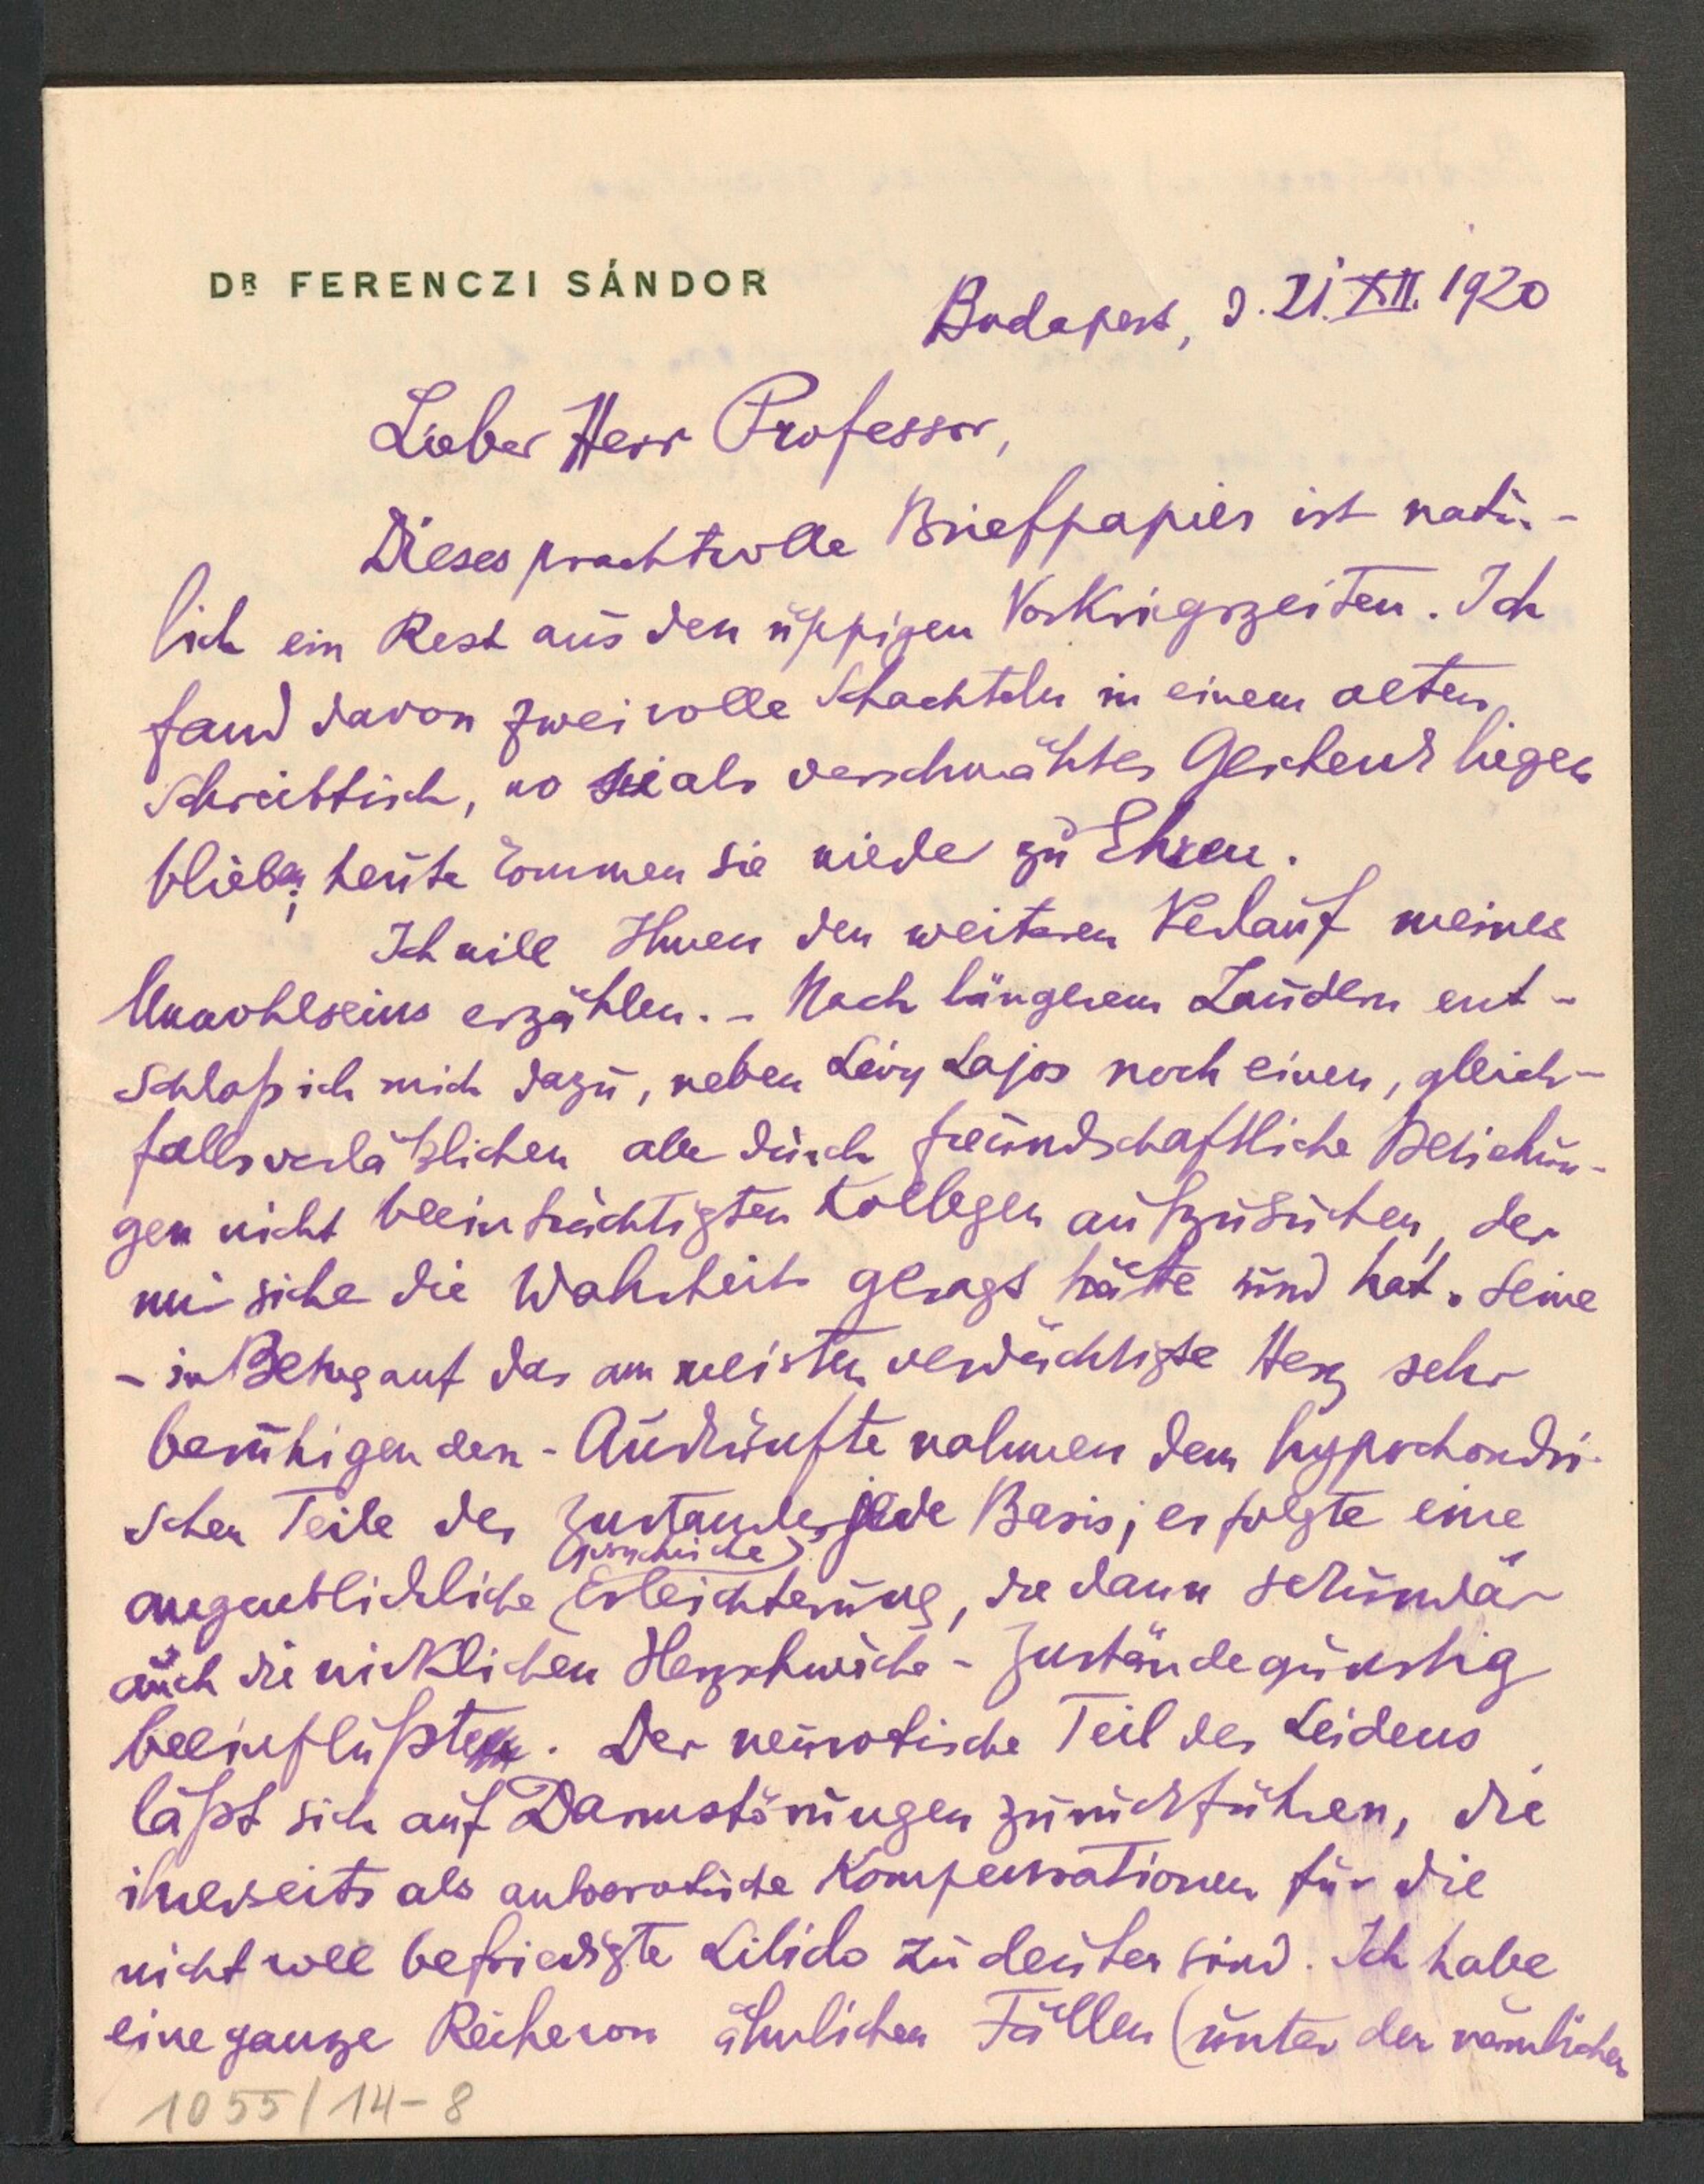 DR FERENCZI SÁNDOR
Budapest, d. 21. XII. 1920
Lieber Herr Professor,
Dieses prachtvolle Briefpapier ist natür-
lich ein Rest aus den üppigen Vorkriegszeiten. Ich
fand davon zwei volle Schachteln in einem alten
Schreibtisch, wo sie als verschmähtes Geschenk liegen
blieben; heute kommen sie wieder zu Ehren.
Ich will Ihnen den weiteren Verlauf meines
Unwohlseins erzählen. – Nach längerem Zaudern ent-
schloß ich mich dazu, neben Lévy Lajos noch einen, gleich-
falls verläßlichen aber durch freundschaftliche Beziehun-
gen nicht beeinträchtigten Kollegen aufzusuchen, der
mir sicher die Wahrheit gesagt hätte und hat. Seine
– in Bezug auf das am meisten verdächtigte Herz sehr
beruhigenden – Auskünfte nahmen dem hypochondri-
schen Teile des Zustandes jede Basis; es folgte eine
augenblickliche (psychische) Erleichterung, die dann sekundär
auch die wirklichen Herzschwäche-Zustände günstig
beeinflußte. Der neurotische Teil des Leidens
läßt sich auf Darmstörungen zurückführen, die
ihrerseits als autoerotische Kompensationen für die
nicht voll befriedigte Libido zu deuten sind. Ich habe
eine ganze Reihe von ähnlichen Fällen (unter der nämlichen
1055/14-8